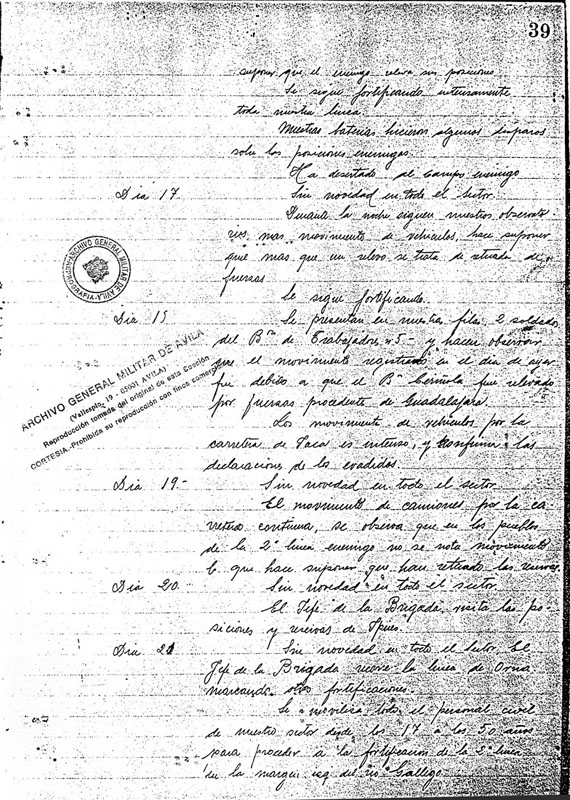 39
suponer que el enemigo releva sus posiciones.
Se sigue fortificando intensamente
toda nuestra linea.
Nuestras baterias hicieron algunos disparos
sobre las posiciones enemigas.
Ha desertado al campo enemigo
Dia 17 Sin novedad en todo el sector.
la noche siguen nuestros observato
rios mas movimiento de vehiculos, hace suponer
que mas que un relevo se trata de retirada de
fuerzas.
Se sigue fortificando.
Dia 15 Se presentan en nuestra filas 2 soldados
del Bon de Trabajadores nº 5 - y hacen observar
que el movimiento registrado en el dia de ayer
fue debito a que el Bon fue relevado
por fuerzas procedente de Guadalajara.
Los movimiento de vehiculos por la
carretera de Jaca es intenso, y las
declaraciones de los evadidos.
Dia 19.- Sin novedad en todo el sector.
El movimiento de camiones por la ca-
rretera continua, se observa que en los pueblos
de la 2ª linea enemigo no se nota movimiento
lo que hace suponer que han retirado las reservas.
Dia 20. Sin novedad en todo el sector.
El Jefe de la Brigada visita las po-
siciones y reservas de Ipies.
Dia 21 Sin novedad en todo el sector. El
Jefe de la Brigada recorre la linea de Orna
marcando otras fortificaciones.
Se moviliza todo el personal civil
de nuestro sector desde los 17 a los 50 años
para proceder a la fortificacion de la 2ª linea
en la margen izq. del rio Gallego.
ARCHIVO GENERAL MILITAR DE AVILA
ARCHIVO GENERAL MILITAR DE AVILA
(Vallespin, 19 - 05001 AVILA)
Reproducción tomada del original de esta Sección
CORTESIA.-Prohibida su reproducción con fines comerc